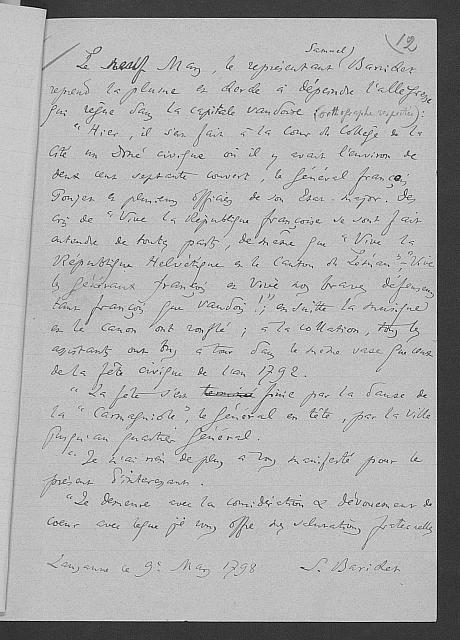 12
Samuel)
Le neuf Mars, le représentant (Baridet
reprend la plume et cherche à dépeindre l'allégresse
qui règne dans la capitale vaudoise (orthographe respectée):
"Hier, il s'en fait à la Cour du College de la
Cité un Diné civique où il y avait l'environ de
deux cent septante couvert, le général françois
Pouget et plusieurs officiers de son Etat-major. Des
cris de "Vive la République françoise se sont fait
entendre de toutes parts, de même que "Vive la
République Helvétique et le Canton du Léman"; "Vive
les généraux françois et Vive nos braves défenseurs
tant françois que vaudois!"; ensuitte la musique
et le canon ont ronflé; à la collation, tous les
assistants ont bu à tour dans le même vase que ceux
de la fête civique de l'an 1792.
"La fête s'est terminée finie par la danse de
la "Carmagniole", le général en tête, par la Ville
jusqu'au quartier Général.
"Je n'ai rien de plus à vous manifesté pour le
présent d'interessant.
"Je demeure avec la considération & dévouement de
coeur avec lequel je vous offre mes salutations fraternelles
Lausanne le 9e Mars 1798 S. Baridet